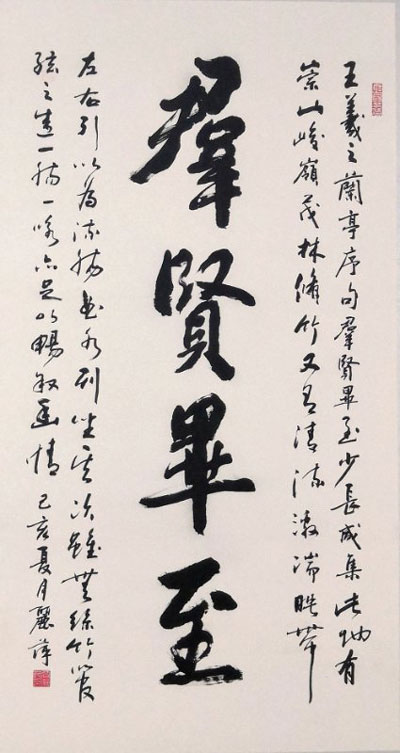 王羲之蘭亭序句羣賢畢至少長咸集此地有
崇山峻嶺茂林脩竹又有清流激湍暎帶
羣賢畢至
左右引以為流觴曲水列坐其次雖無絲竹管
絃之盛一觴一詠亦足以暢敘幽情 己亥夏月麗萍